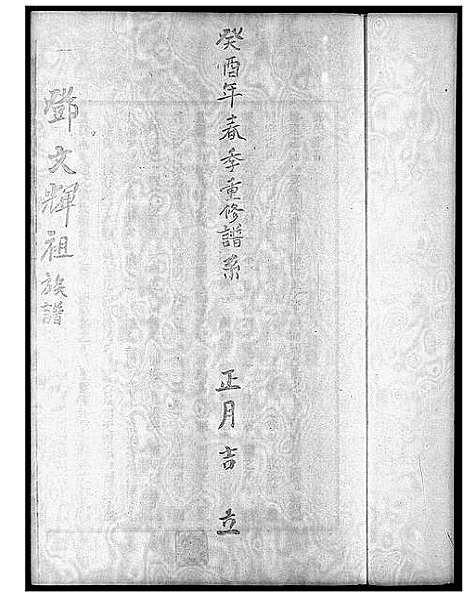 癸酉年春季重修譜系 正月吉立
鄧文輝祖族譜